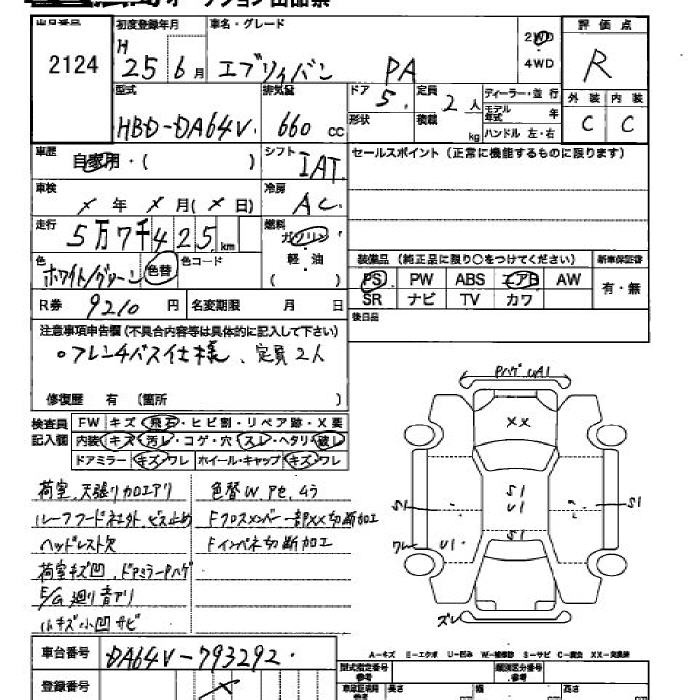 オークション出品票
出品番号 2124
初度登録年月 H 25年 6月
車名・グレード エブリィバン PA
2WD
4WD
評価点 R
型式 HBD-DA64V
排気量 660 cc
ドア 5
形状
定員 2人
積載 kg
ディーラー・並行
モデル年式 年
ハンドル 左・右
外装 C
内装 C
車歴 自家用・( )
シフト IAT
セールスポイント (正常に機能するものに限ります)
車検 × 年 × 月(× 日)
冷房 AC
走行 5万7千425 km
燃料 ガソリン
軽・油
( )
色 ホワイト/グリーン 色替
色コード
装備品 (純正品に限り○をつけてください)
新車保証書
PS PW ABS エアB AW
有・無
SR ナビ TV カワ
R券 9210 円
名変期限 月 日
後日品
注意事項申告欄(不具合内容等は具体的に記入して下さい)
○フレンチバス仕様、定員2人
修復歴 有 (箇所 )
検査員記入欄
FW キズ・飛石・ヒビ割・リペア跡・X要
内装・キズ・汚レ・コゲ・穴・スレ・ヘタリ・破レ
ドアミラー・キズ・ワレ ホイール・キャップ・キズ・ワレ
荷室、天張り加工アリ
色替W、アセ、ムラ
ルーフフードネオト、ビス止め
Fクロスメンバー一部XX切断加工
ヘッドレスト欠
Fインパネ切断加工
荷室キズ凹、ドアミラーPハゲ
E/G廻り音アリ
小キズ小凹サビ
Pハゲ UA1
XX
S1
U1
S1
S1
S1
ワレ
U1
ズレ
A-キズ E-エクボ U-凹み W-補修跡 S-サビ C-腐食 XX-交換済
車台番号 DA64V-793292
登録番号 ×
型式指定番号
参考
類別区分番号
参考
長さ
幅
高さ